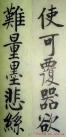 使可覆器欲
難量墨悲絲